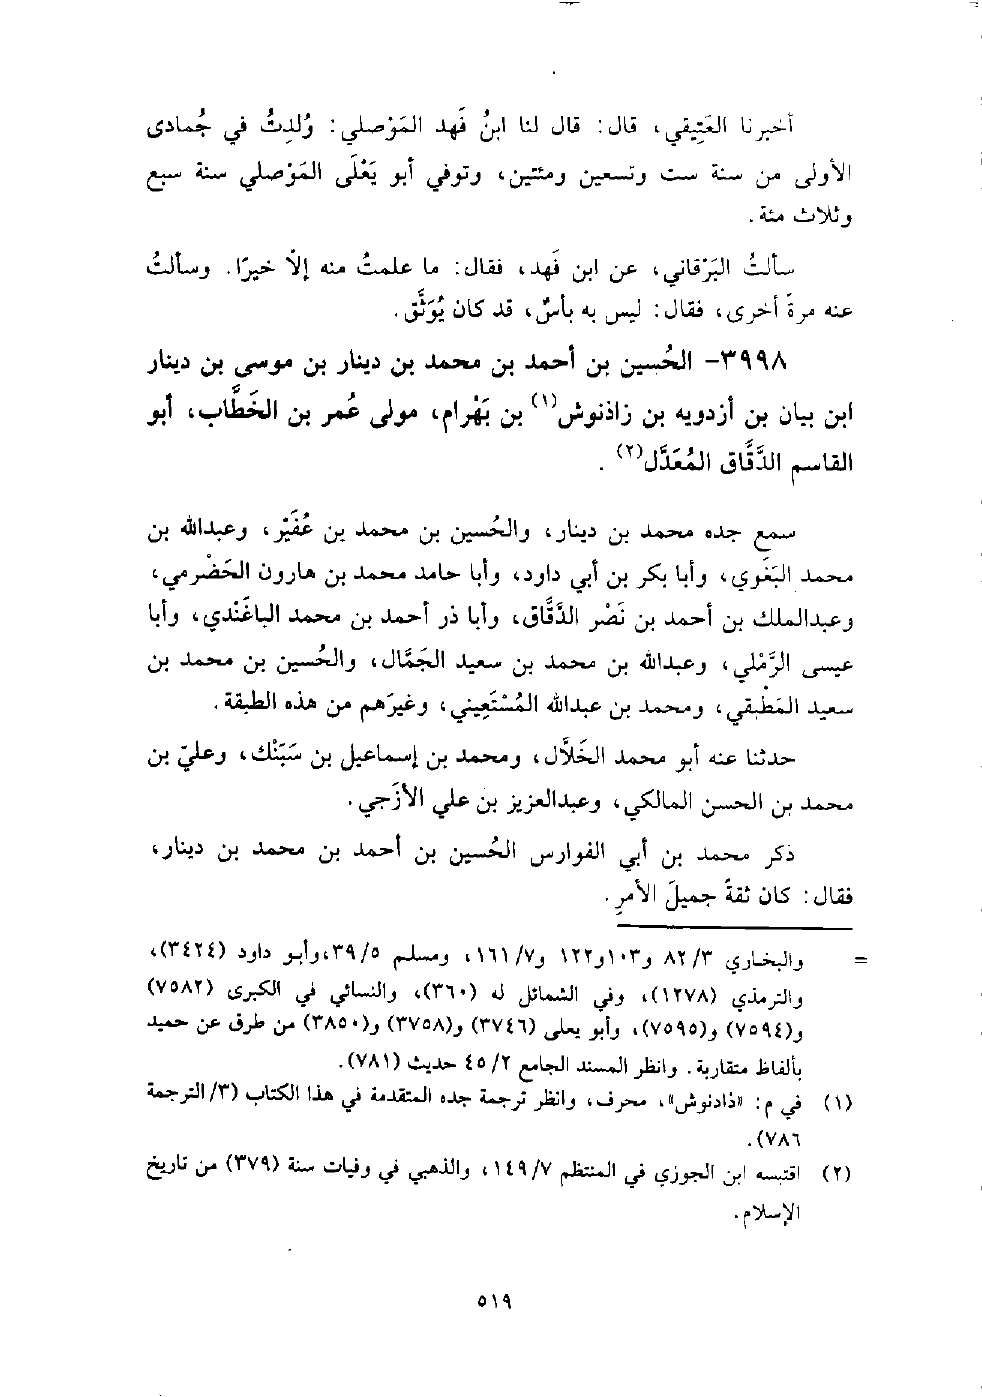 أخبرنا العَتِيقي، قال: قال لنا ابنُ فَهد المَوْصلي: وُلدِتُ في جُمادى
الأولى من سنة ست وتسعين ومئتين، وتوفي أبو يَعْلَى المَوْصلي سنة سبع
وثلاث مئة.
سألتُ البَرْقاني، عن ابن فَهد، فقال: ما علمتُ منه إلّا خيرًا. وسألتُ
عنه مرةً أخرى، فقال: ليس به بأسٌ، قد كان يُوَثَّق.
٣٩٩٨- الحُسين بن أحمد بن محمد بن دينار بن موسى بن دينار
ابن بيان بن أزدويه بن زاذنوش(١) بن بَهْرام، مولى عُمر بن الخَطَّاب، أبو
القاسم الدَّقَّاق المُعَدَّل(٢).
سمع جده محمد بن دينار، والحُسين بن محمد بن عُفَيْر، وعبدالله بن
محمد البَغَوي، وأبا بكر بن أبي داود، وأبا حامد محمد بن هارون الحَضْرمي،
وعبدالملك بن أحمد بن نَصْر الدَّقَّاق، وأبا ذر أحمد بن محمد الباغَنْدي، وأبا
عيسى الرَّمْلي، وعبدالله بن محمد بن سعيد الجَمَّال، والحُسين بن محمد بن
سعيد المَطْبقي، ومحمد بن عبدالله المُسْتَعِيني، وغيرَهم من هذه الطبقة.
حدثنا عنه أبو محمد الخَلَّال، ومحمد بن إسماعيل بن سَبَنْك، وعليّ بن
محمد بن الحسن المالكي، وعبدالعزيز بن علي الأزَجي.
ذكر محمد بن أبي الفوارس الحُسين بن أحمد بن محمد بن دينار،
فقال: كان ثقةً جميلَ الأمرِ.
= والبخاري ٣/ ٨٢ و١٠٣ و١٢٢ و٧/ ١٦١، ومسلم ٥/ ٣٩، وأبو داود (٣٤٢٤)،
والترمذي (١٢٧٨)، وفي الشمائل له (٣٦٠)، والنسائي في الكبرى (٧٥٨٢)
و(٧٥٩٤) و(٧٥٩٥)، وأبو يعلى (٣٧٤٦) و(٣٧٥٨) و(٣٨٥٠) من طرق عن حميد
بألفاظ متقاربة. وانظر المسند الجامع ٢/ ٤٥ حديث (٧٨١).
(١) في م: «ذادنوش»، محرف، وانظر ترجمة جده المتقدمة في هذا الكتاب (٣/ الترجمة
٧٨٦).
(٢) اقتبسه ابن الجوزي في المنتظم ٧/ ١٤٩، والذهبي في وفيات سنة (٣٧٩) من تاريخ
الإسلام.
٥١٩